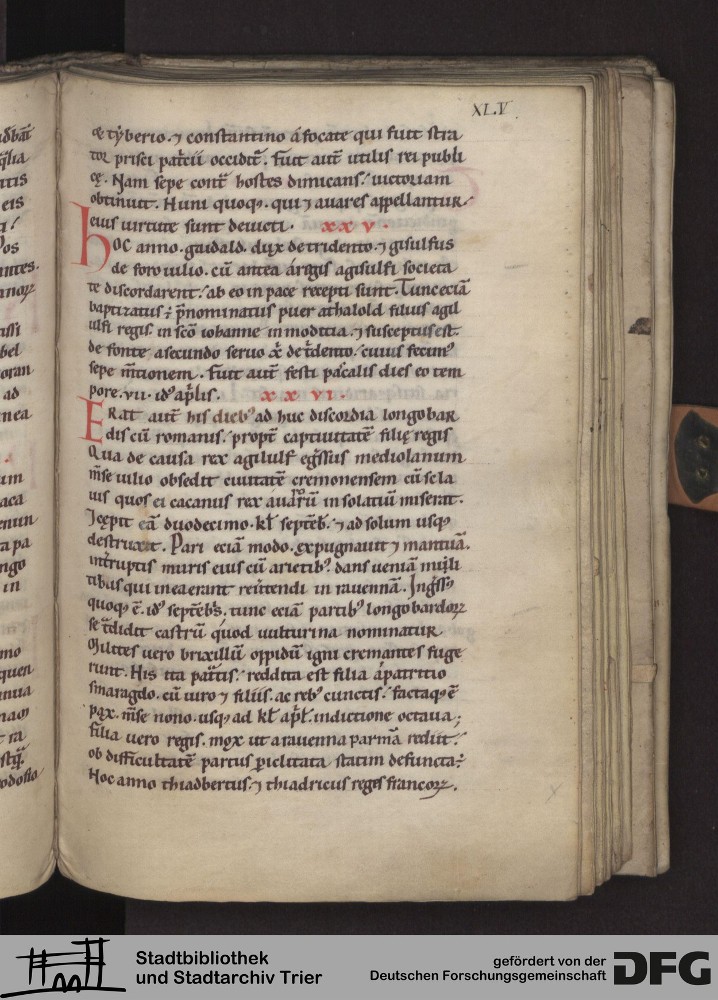 XL.V
& tẏberio. ⁊ constantino á focate qui fuit stra
tor prisci patͥcii occidit᷒. Fuit aut̄ utilis rei publi
cę. Nam sepe contͣ hostes dimicans / uictoriam
obtinuit. Huni quoq;. qui ⁊ auares appellantur /
eius uirtute sunt deuicti. xx v.
hoc anno. gaidald. dux de tridento. ⁊ gisulfus
de foro iulio. cū antea á regis agisulfi societa
te discordarent / ab eo in pace recepti sunt. Tunc eciā
baptizatus ÷ p̄nominatus puer athalold filius agil
ulfi regis. in sc̄o iohanne in moditia. ⁊ susceptus est.
de fonte a secundo seruo x̄ de tͥdento / cuius fecim᷒
sepe m̄tionem. Fuit aut̄ festi pascalis dies eo tem
pore. vii. id᷒ ap̄lis. xx vi.
Erat aut̄ his dieb᷒ ad huc discordia longobar
dis cū romanis / propt̄ captiuitatē filię regis
Qua de causa rex agilulf eg̃ssus mediolanum
m̄se iulio obsedit ciuitatē cremonensem cū scla
uis quos ei cacanus rex auarorū in solatiū miserat.
Icępit eā duodecimo. kł septēb. ⁊ ad solum usq;
destruxit. Pari eciam modo. expugnauit ⁊ mantuā.
int̄ruptis muris eius cū arietib᷒. dans ueniā mıl̓i
tibus qui inea erant reūtendi in rauennā. Ing̃ss᷒
quoq; ē. id᷒ septēb̄s. tunc eciam partib᷒ longobardoꝝ
se tͣdidit castrū quod uulturina nominatur
Milites uero brixillū oppidū igni cremantes fuge
runt. His ita patͣtis / reddita est filia á patritio
smaragdo. cū uiro ⁊ filiis. ac reb᷒ cunctis / factaq; ē
pax. m̄se nono. usq; ad kł ap̄ł. indictione octaua;
filia uero regis. mox ut a rauenna parmā rediit /
ob difficultatē partus ꝑiclitata statim defuncta ÷
Hoc anno thiadbertus. ⁊ thiadricus reges francoꝝ.
Stadtbibliothek
und Stadtarchiv Trier
gefördert von der
Deutschen Forschungsgemeinschaft
DFG